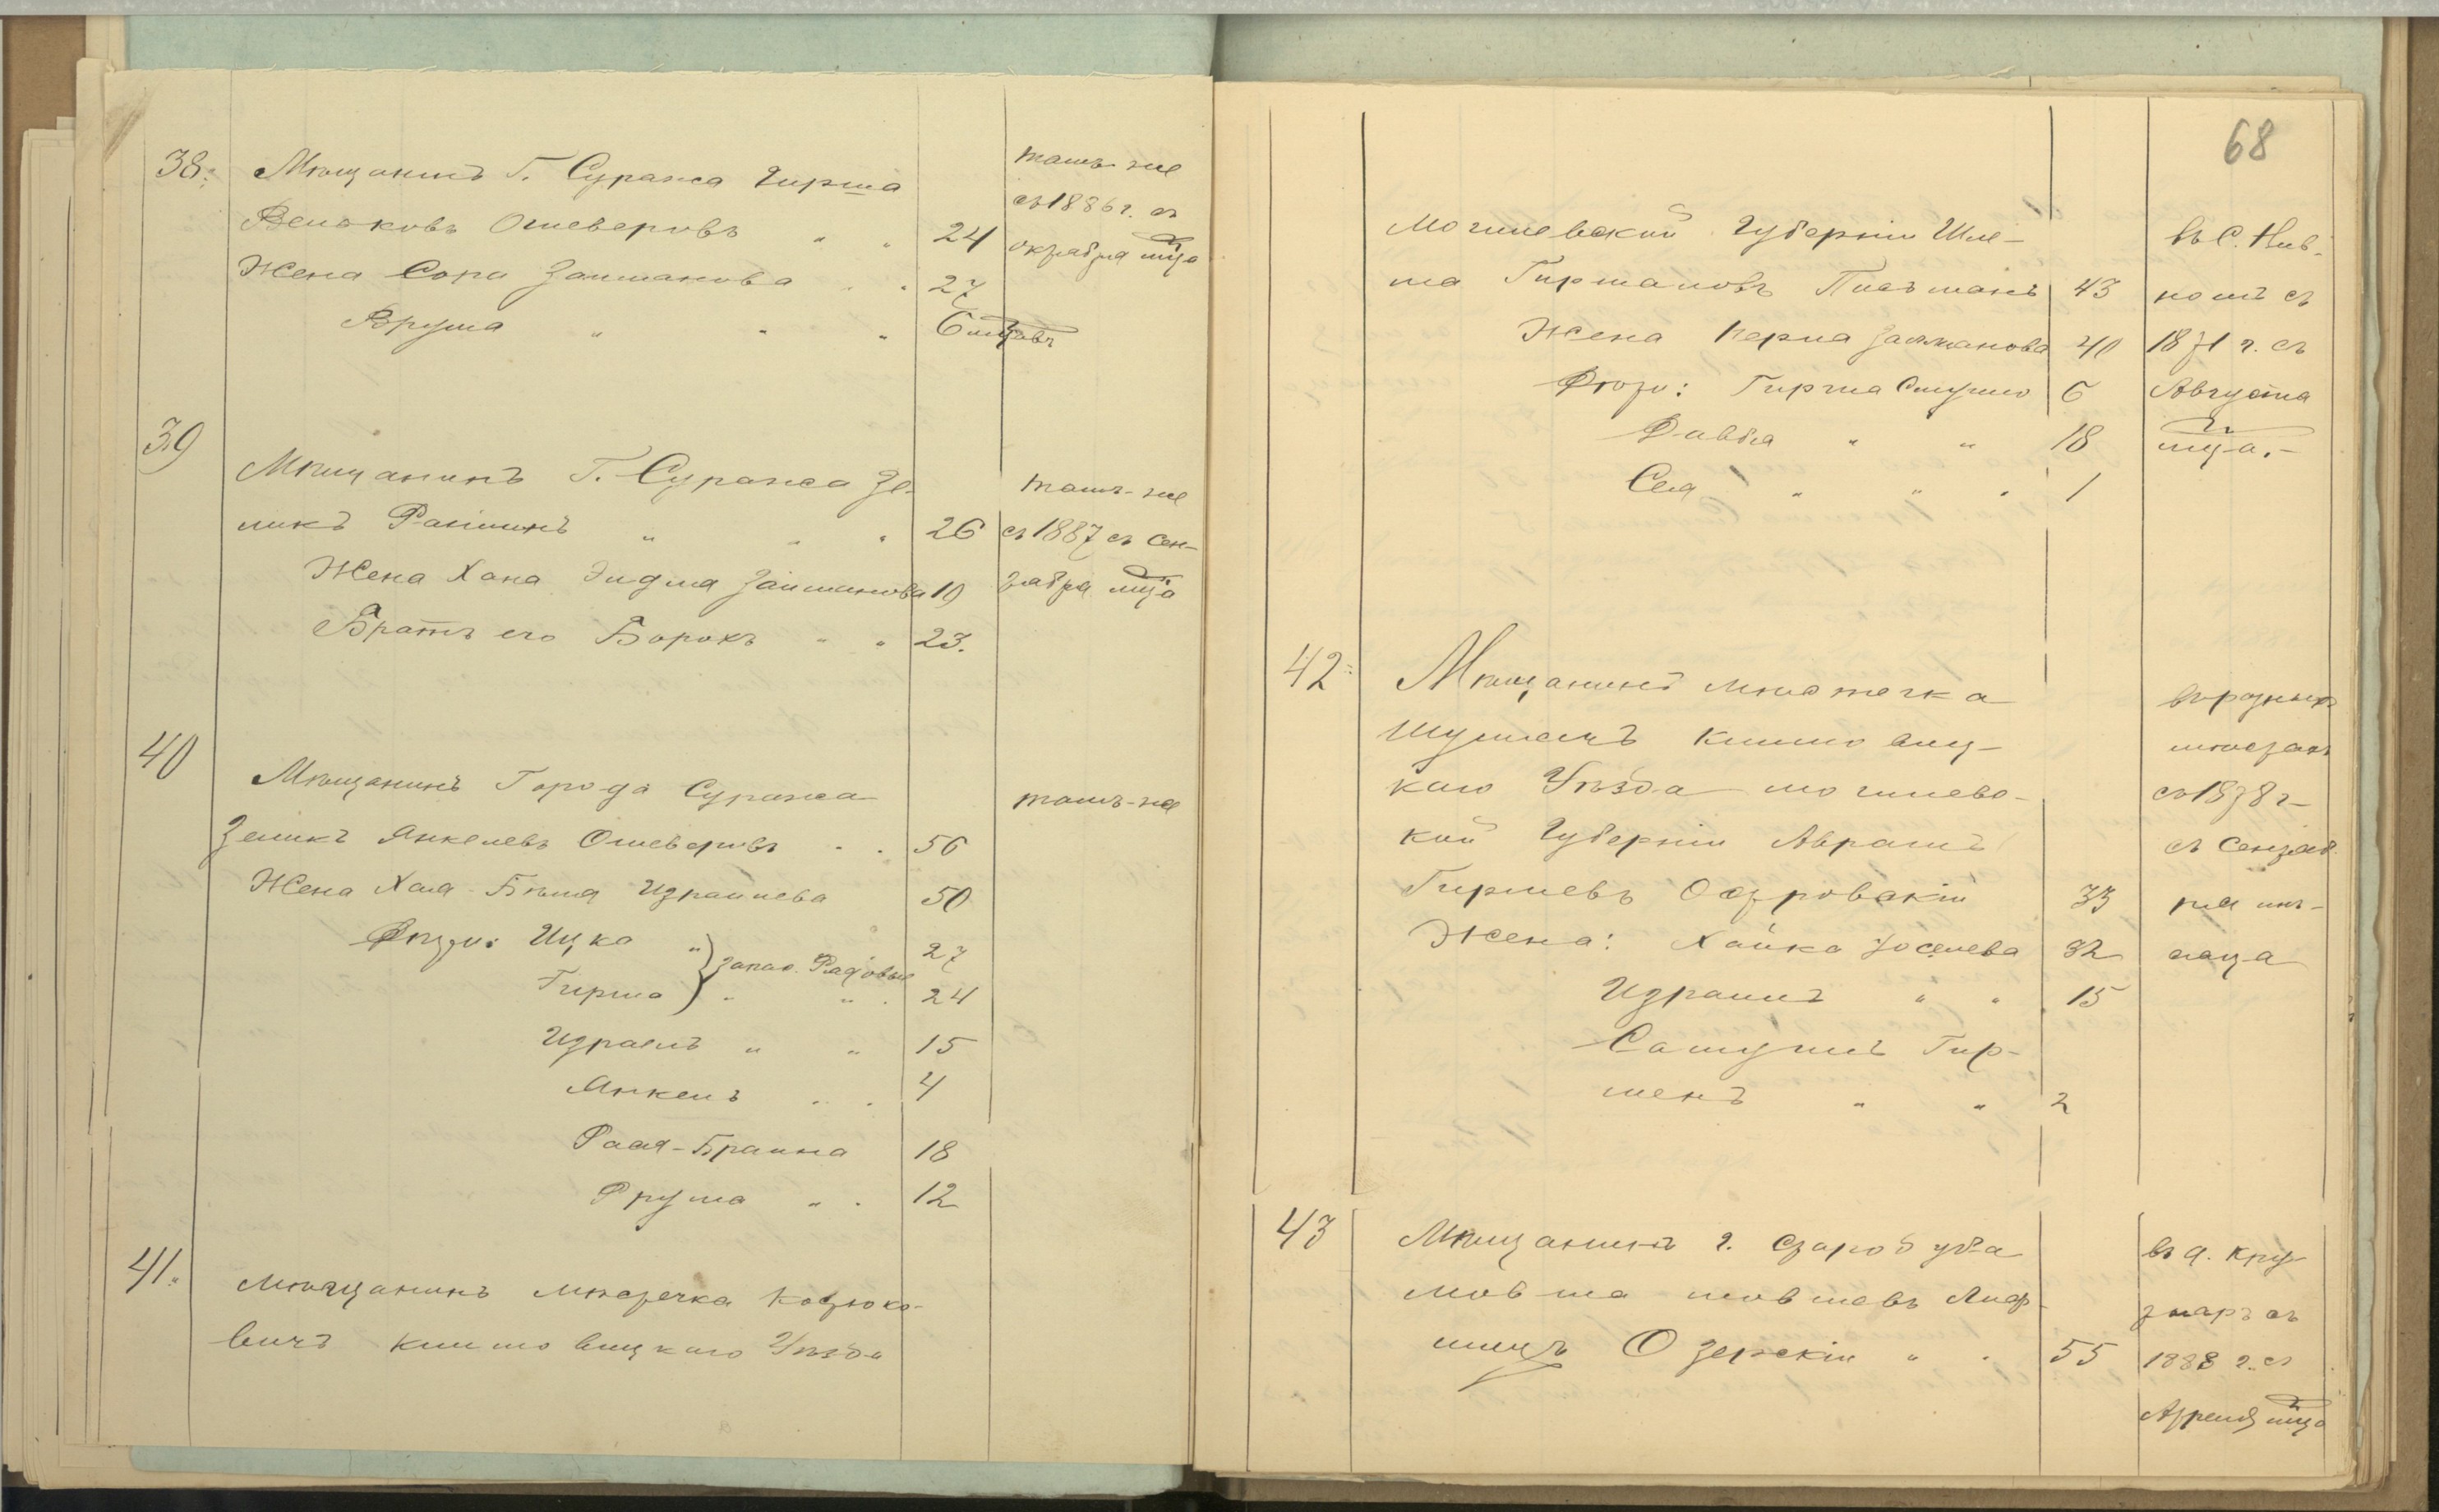 38. Мѣщанинъ Г. Суража Гирша
Вельковъ Ошеверовъ " " 24
Жена Сора Залманова . . 27
Фрума " " " 6 мцовъ
тамъ-же
съ 1886 г. съ
октября мца
39 Мѣщанинъ Г. Суража Зе-
ликъ " " " 26
Жена Хана Элдма Залманова 19
Братъ его Борохъ " " 23.
тамъ-же
съ 1887 съ Сен-
тября мца
40 Мѣщанинъ Города Суража
Зеликъ Янкелевъ Ошеверовъ . . 56
Жена Хая-Бейля Израилева 50
Дѣти: Ицка " 27
Гирша " " . 24
запас. Рядовые
Израель " " 15
Янкель . . 4
Рася-Брайна 18
Фрума " . 12
тамъ-же
41. Мѣщанинъ мѣстечка Костюко-
вичъ Климовицкаго Уѣзда
68
Могилевской Губерніи Шле-
ма Гиршановъ Письманъ 43
Жена Перла Залманова 40
Дѣти: Гирша Смуило 6
Давыд " " 18
Сея " " . 1
въ С. Нив-
номъ съ
1871 г. съ
Августа
мца.-
42. Мѣщанинъ мѣстечка
Шумячъ Климовиц-
каго Уѣзда Могилевс-
кой Губерніи Абрамъ
Гиршевъ Островскій 33
Жена: Хайка Іоселева 32
Израиль " " . 15
Самуилъ Гир-
шенъ " " 2
въ разныхъ
мѣстахъ
съ 1878 г-
съ Сентяб-
ря мѣ-
сяца
43 Мѣщанинъ г. Стародуба
Мовша Мовшевъ
Озерскій " . 55
въ д. Кру-
съ
1888 г. съ
Апреля мца